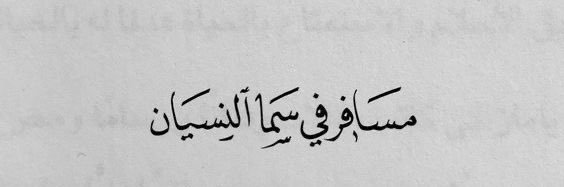 مسَافر في سَمَا ٱلنسيَان